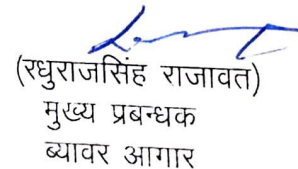 (रघुराजसिंह राजावत)
मुख्य प्रबन्धक
ब्यावर आगार